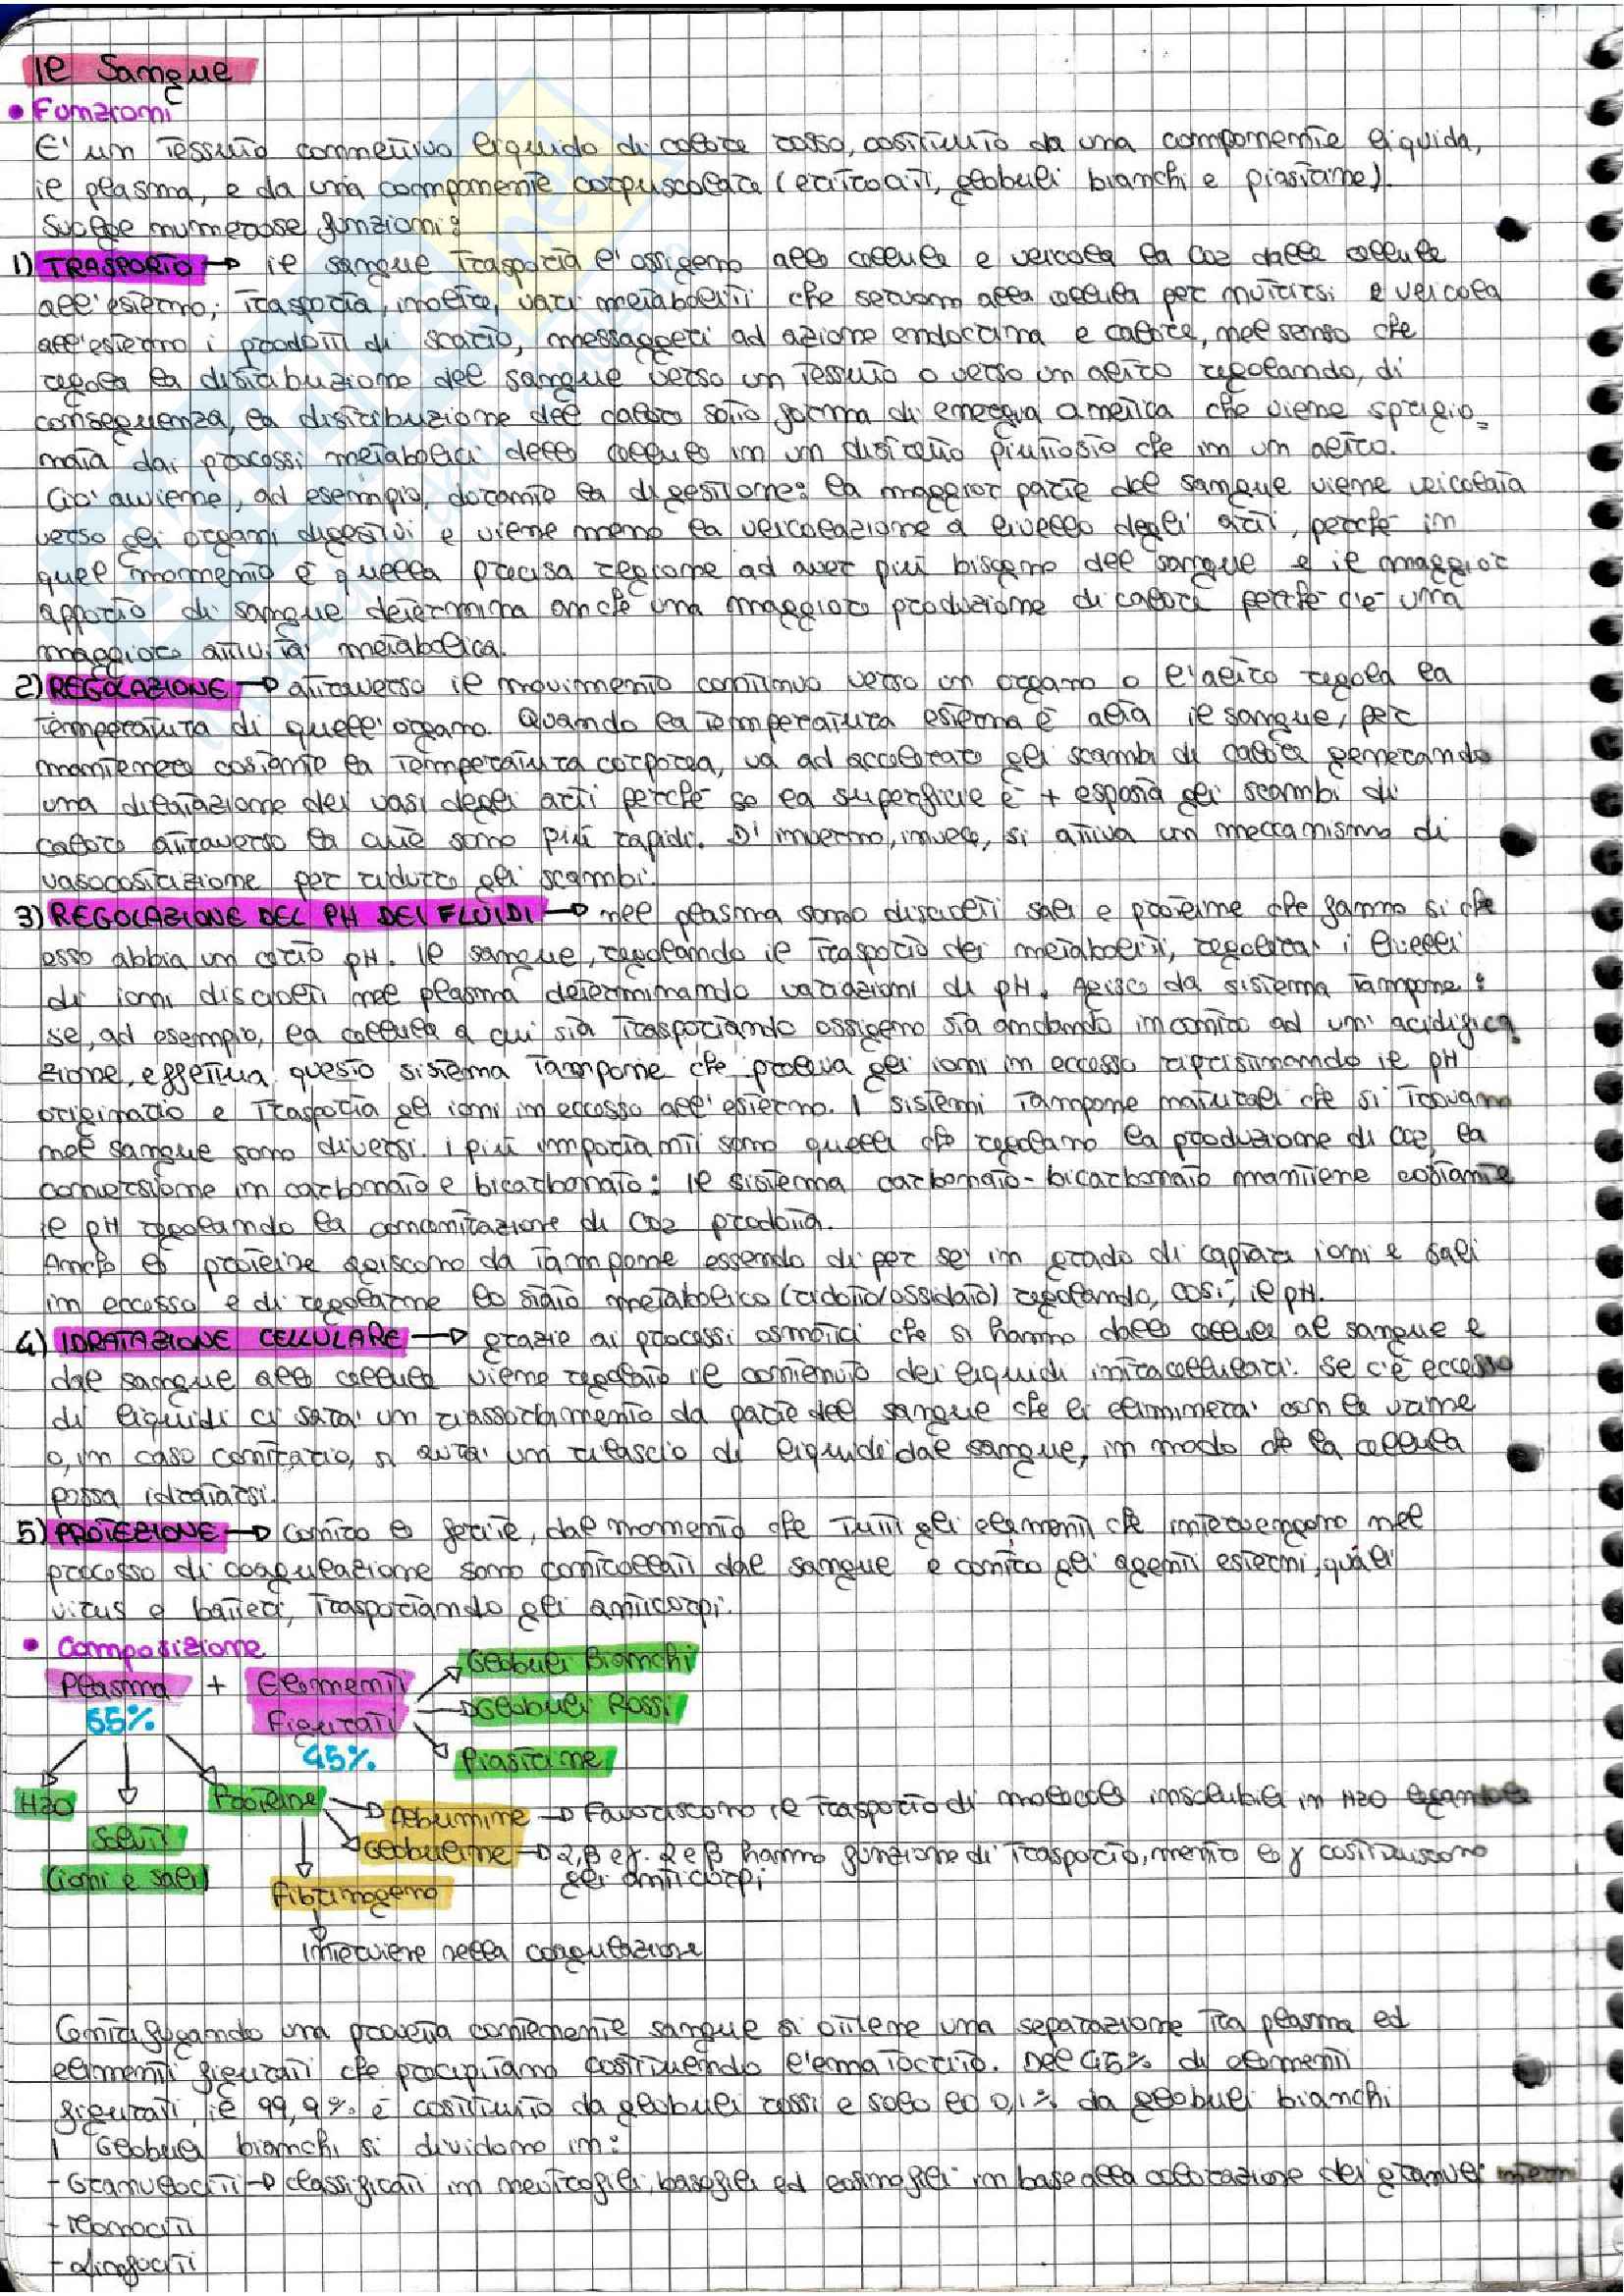 Il Sangue
• Funzioni
E' un tessuto connettivo liquido di colore rosso, costituito da una componente liquida,
il plasma, e da una componente corpuscolata (eritrociti, globuli bianchi e piastrine).
Svolge numerose funzioni:
1) TRASPORTO → il sangue trasporta l'ossigeno alle cellule e veicola la CO2 dalle cellule
all'esterno; trasporta, inoltre, vari metaboliti che servono alla cellula per nutrirsi e veicola
all'esterno i prodotti di scarto, messaggeri ad azione endocrina e calore, nel senso che
regola la distribuzione del sangue verso un tessuto o verso un altro regolando, di
conseguenza, la distribuzione del calore sotto forma di energia che viene sprigio=
nata dai processi metabolici delle cellule in un distretto piuttosto che in un altro.
Ciò avviene, ad esempio, durante la digestione: la maggior parte del sangue viene veicolata
verso gli organi digestivi e viene meno la veicolazione a livello degli arti, perché in
quel momento è quella precisa regione ad aver più bisogno del sangue e il maggior
apporto di sangue determina anche una maggiore produzione di calore perché c'è una
maggiore attività metabolica.
2) REGOLAZIONE → attraverso il movimento continuo verso un organo o l'altro regola la
temperatura di quell'organo. Quando la temperatura esterna è alta il sangue, per
mantenere costante la temperatura corporea, va ad accelerare gli scambi di calore generando
una dilatazione dei vasi degli arti perché se la superficie è + esposta gli scambi di
calore attraverso la cute sono più rapidi. D'inverno, invece, si attiva un meccanismo di
vasocostrizione per ridurre gli scambi.
3) REGOLAZIONE DEL PH DEI FLUIDI → nel plasma sono disciolti sali e proteine che fanno sì che
esso abbia un certo pH. Il sangue, regolando il trasporto dei metaboliti, regolerà i livelli
di ioni disciolti nel plasma determinando variazioni di pH. Agisce da sistema tampone:
se, ad esempio, la cellula a cui sta trasportando ossigeno sta andando incontro ad un'acidifica
zione, effettua questo sistema tampone che preleva gli ioni in eccesso ripristinando il pH
originario e trasporta gli ioni in eccesso all'esterno. I sistemi tampone naturali che si trovano
nel sangue sono diversi. i più importanti sono quelli che regolano la produzione di CO2, la
conversione in carbonato e bicarbonato: il sistema carbonato-bicarbonato mantiene costante
il pH regolando la concentrazione di CO2 prodotta.
Anche le proteine agiscono da tampone essendo di per sé in grado di captare ioni e sali
in eccesso e di regolarne lo stato metabolico (ridotto/ossidato) regolando, così, il pH.
4) IDRATAZIONE CELLULARE → grazie ai processi osmotici che si hanno dalle cellule al sangue e
dal sangue alle cellule viene regolato il contenuto dei liquidi intracellulari. Se c'è eccesso
di liquidi ci sarà un riassorbimento da parte del sangue che li eliminerà con le urine
o, in caso contrario, si avrà un rilascio di liquidi dal sangue, in modo che la cellula
possa idratarsi.
5) PROTEZIONE → contro le ferite, dal momento che tutti gli elementi che intervengono nel
processo di coagulazione sono controllati dal sangue e contro gli agenti esterni, quali
virus e batteri, trasportando gli anticorpi.
• Composizione
Globuli Bianchi
Plasma + Elementi
Globuli Rossi
55% Figurati
45% Piastrine
H2O Proteine → Albumine → Favoriscono il trasporto di molecole insolubili in H2O
Soluti Globuline → 2, β e γ. 2 e β hanno funzione di trasporto, mentre le γ costituiscono
(ioni e sali) gli anticorpi
Fibrinogeno
interviene nella coagulazione
Centrifugando una provetta contenente sangue si ottiene una separazione tra plasma ed
elementi figurati che precipitano costituendo l'ematocrito. Del 45% di elementi
figurati, il 99,9% è costituito da globuli rossi e solo lo 0,1% da globuli bianchi
I Globuli bianchi si dividono in:
- Granulociti → classificati in neutrofili, basofili ed eosinofili in base alla colorazione dei granuli interni
- Monociti
- Linfociti